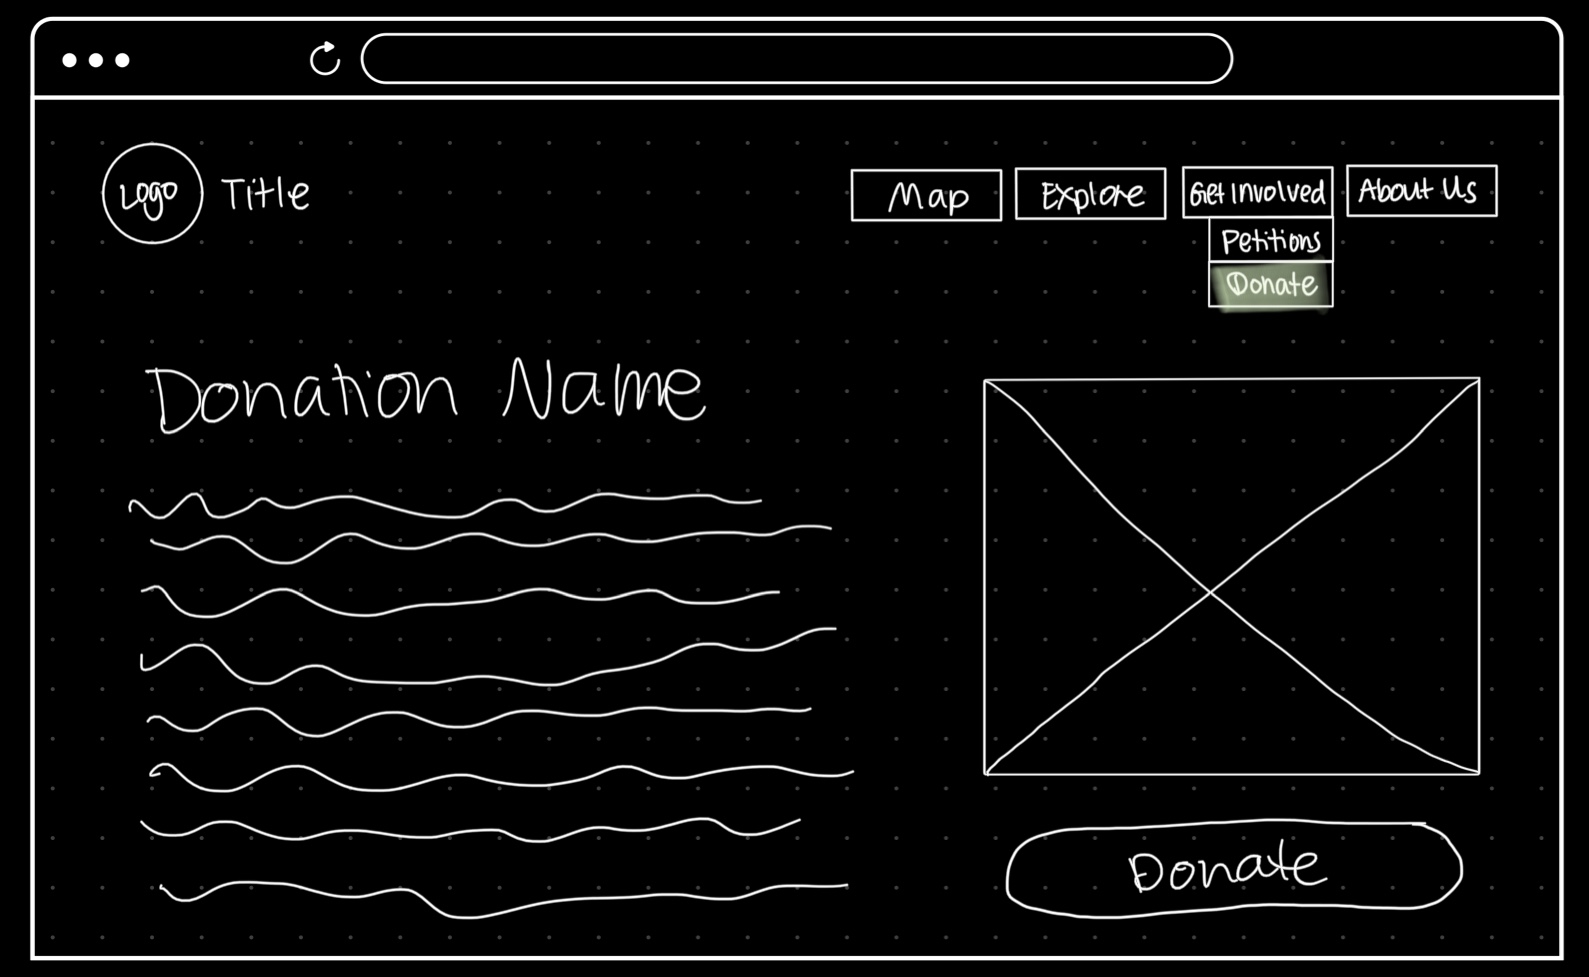 Logo
Title
Map
Explore
Get Involved
About Us
Petitions
Donate
Donation Name
Donate